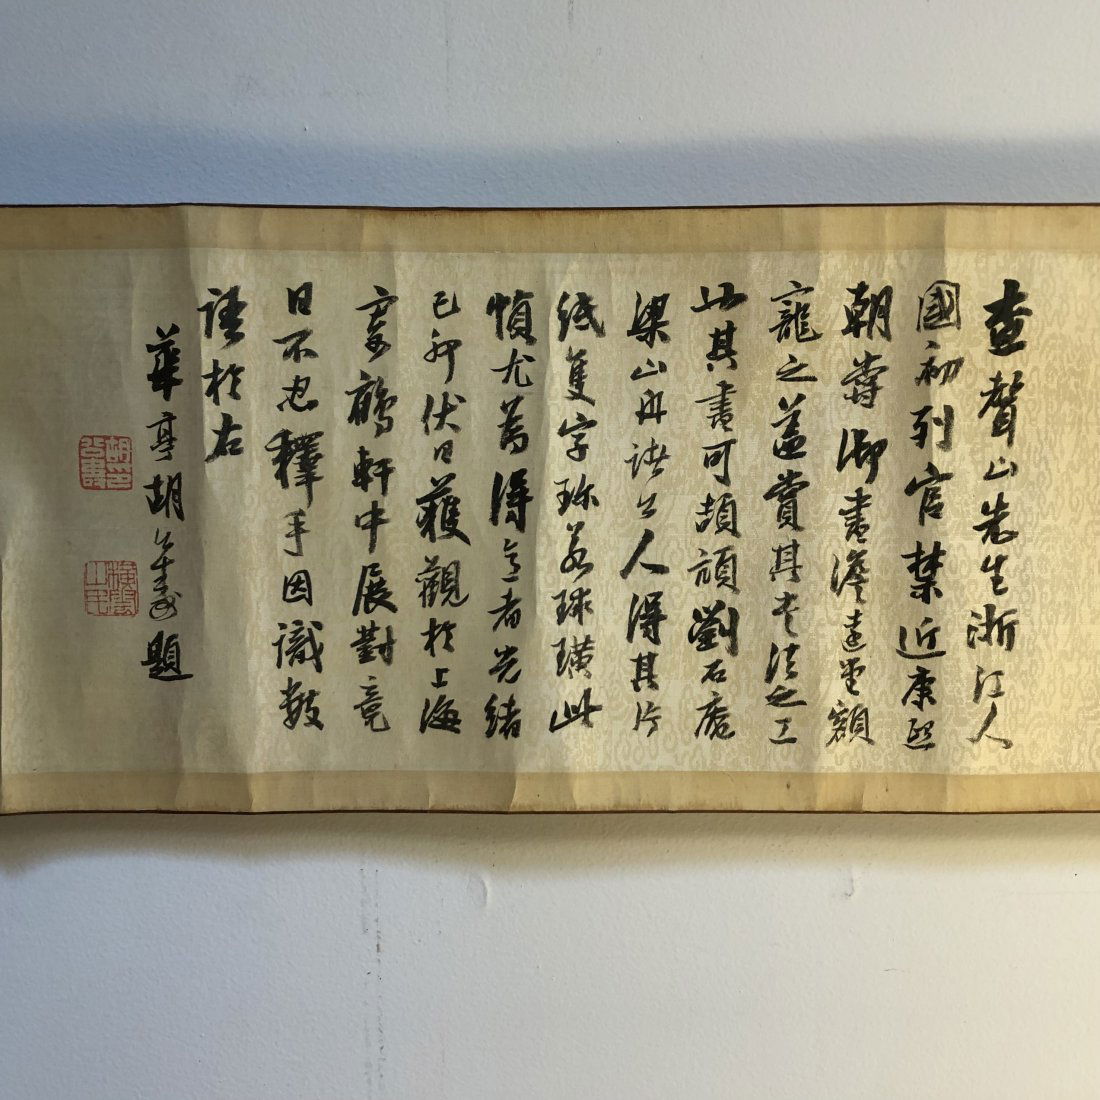 查聲山先生浙江人
國初列官禁近康熙
朝嘗御書澹遠堂額
寵之蓋賞其書法之工
此其書可頡頏劉石庵
梁山舟諸公人得其片
紙隻字珍若球璜此
幀尤為得意者光緒
己卯伏日獲觀於上海
寄鶴軒中展對竟
日不忍釋手因識數
語於右
華亭胡公壽題
胡公壽印
橫雲山民